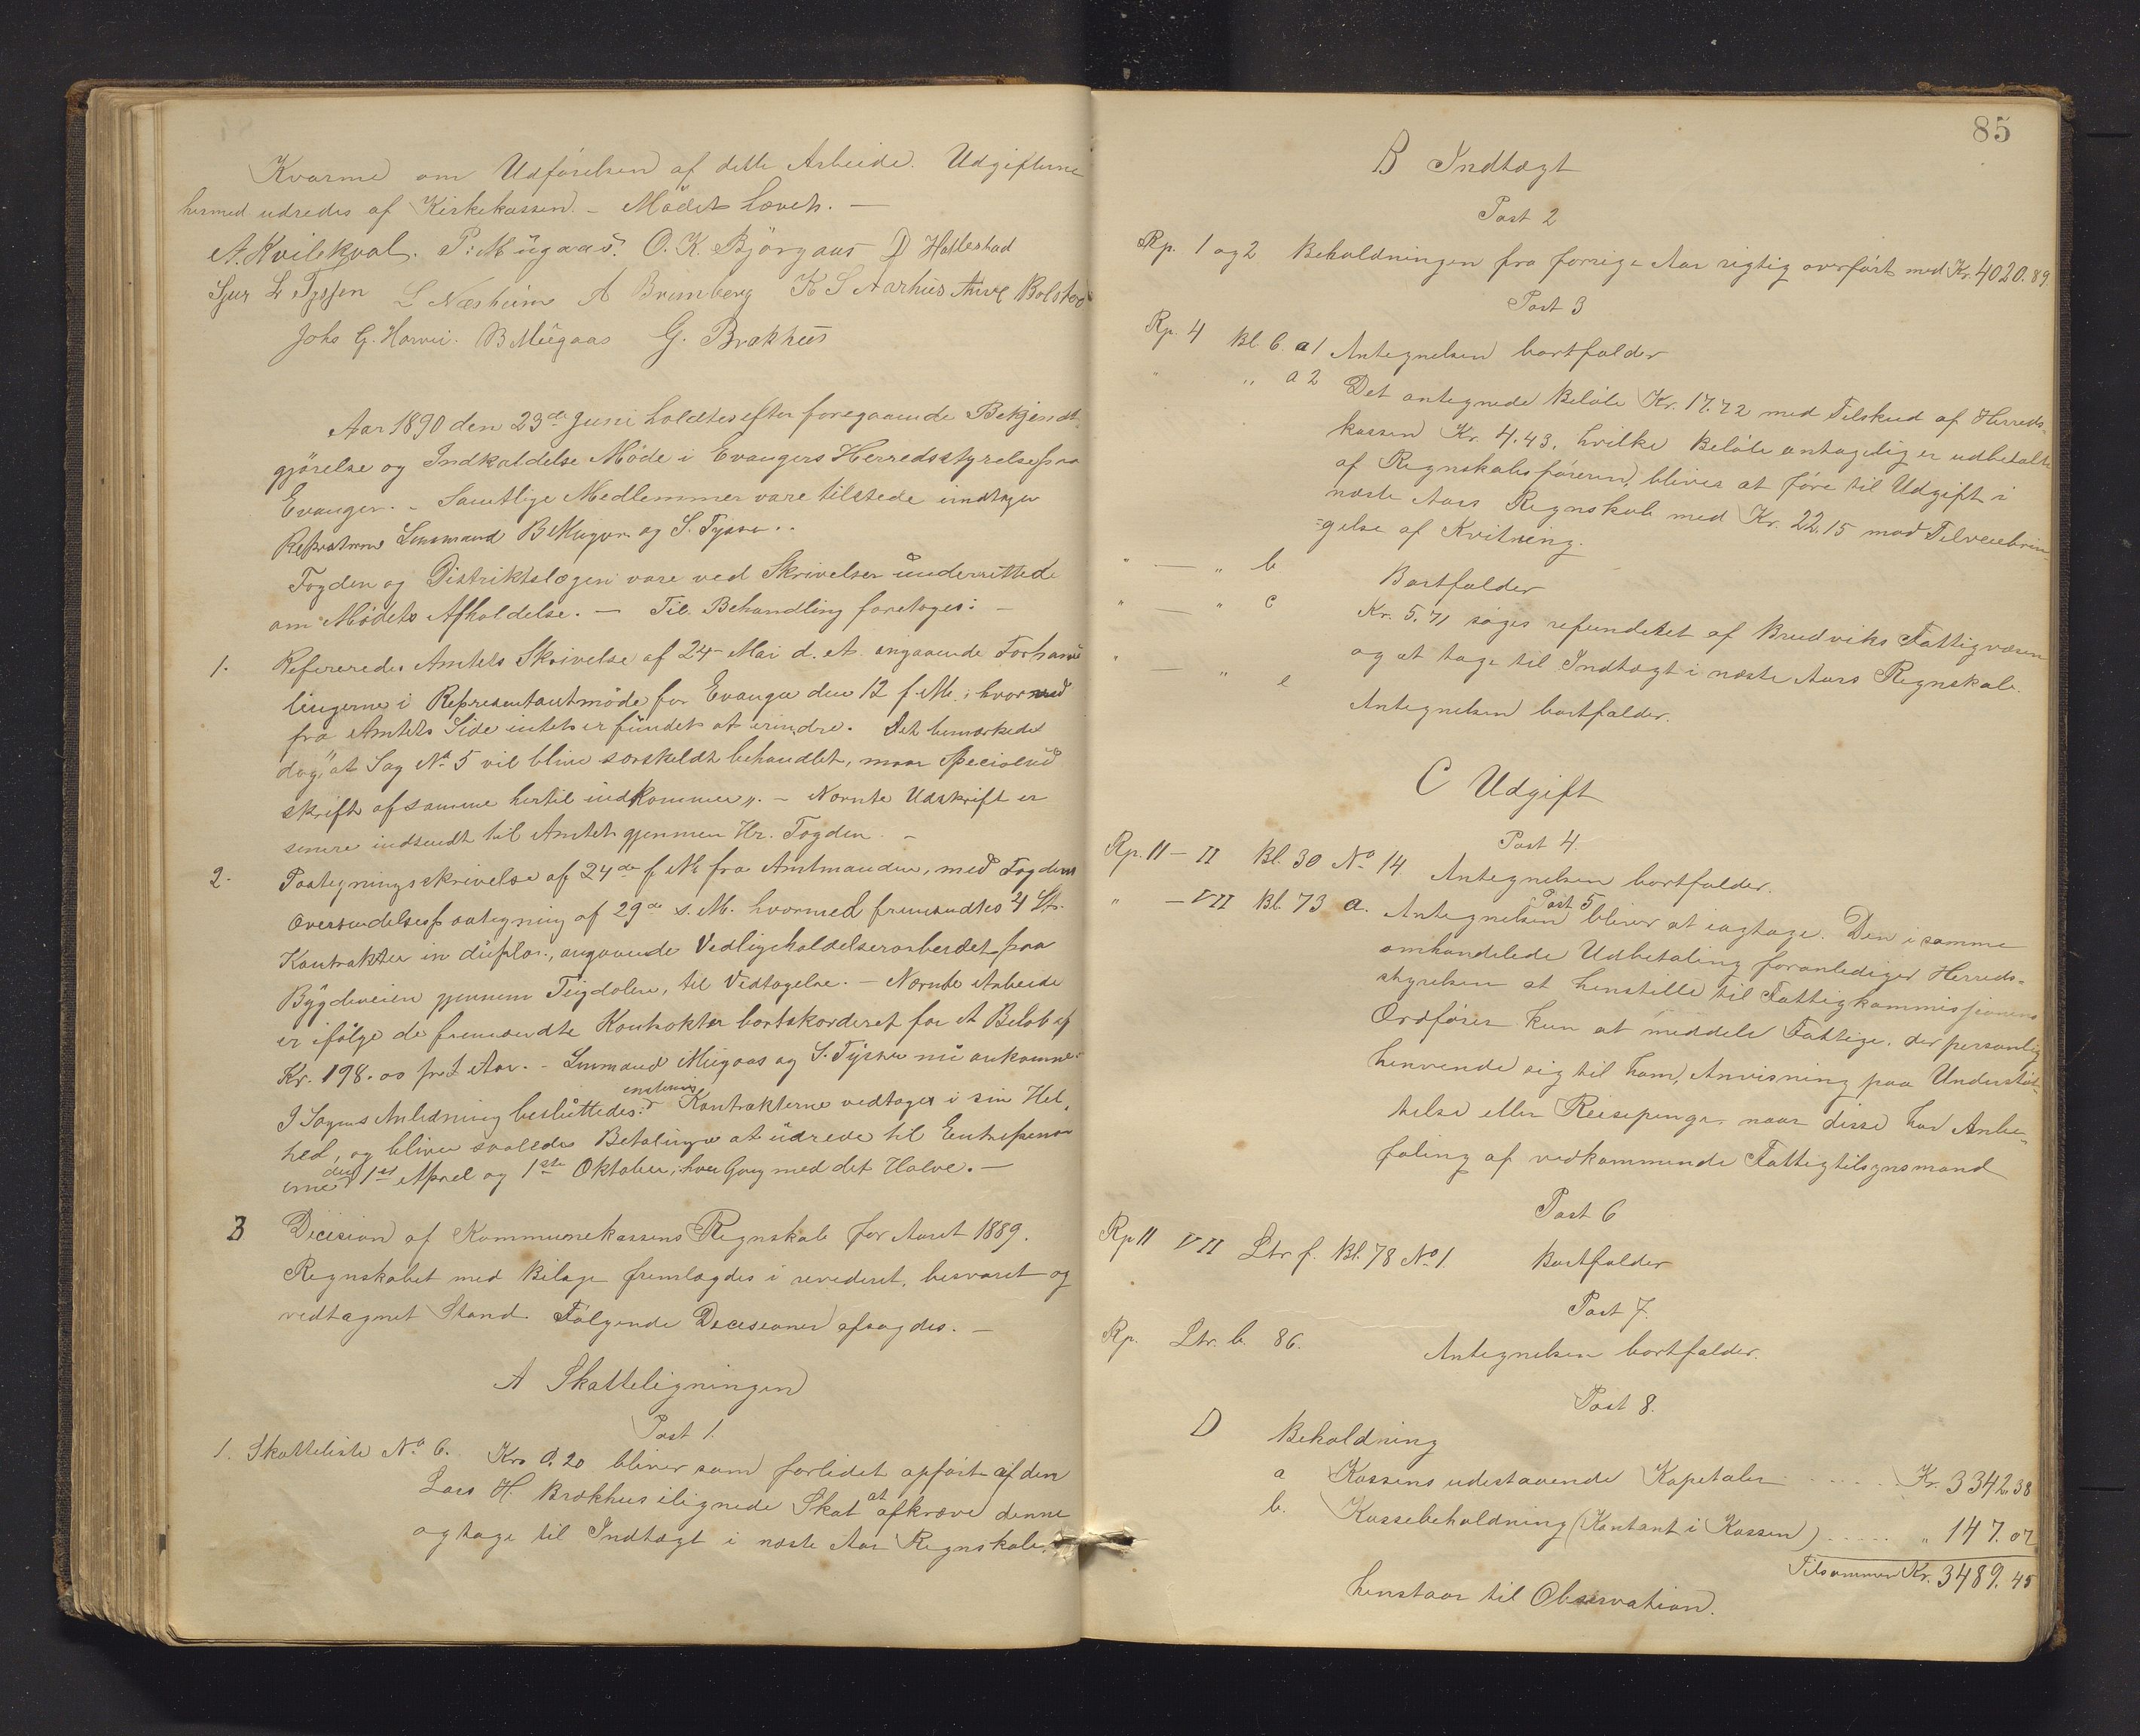 Kvarme om Udførelsen af dette Arbeide. Udgifterne
hermed udredes af Kirkekassen. – Mødet hævet. –
A. Kvilekval. P: Mügaas. O. K. Bjørgaas D Hallestad
Sjur L Tyssen L Næsheim A Brunberg K S Aarhus Anve Bolstad
Johs G. Horvei. B Mügaas G. Brakhus
Aar 1890 den 23de Juni holdtes efter foregaaende Bekjendt-
gjørelse og Indkaldelse Møde i Evangers Herredsstyrelse paa
Evanger. – Samtlige Medlemmer vare tilstede undtagen
Lensmand B Mugaas og S. Tyssen.
Fogden og Distriktslægen vare ved Skrivelser underrettede
om Mødets Afholdelse. – Til Behandling foretoges: –
1. Refereredes Amtets Skrivelse af 24 Mai d. A. angaaende Forhand
lingerne i Representantmøde for Evanger den 12 f. M., hvorved
fra Amtets Side intet er fundet at erindre. Det bemærkedes
dog "at Sag No 5 vil blive særskildt behandlet, naar Specialud
skrift af samme hertil indkommer". – Nævnte Udskrift er
senere indsendt til Amtet gjennem Hr. Fogden. –
2. Paategningsskrivelse af 24de f M fra Amtmanden, med Fogdens
Oversendelsespaategning af 29de s. M. hvormed fremsendtes 4 St.
Kontrakter in duplo., angaaende Vedligeholdelsesarbeidet paa
Bygdeveien gjennem Teigdalen, til Vedtagelse. – Nævnte Arbeide
er ifølge de fremsendte Kontrakter bortakorderet for et Beløb af
Kr. 198.00 pr. 1 Aar. – Lensmand Mügaas og S. Tyssen nu ankomne.
I Sagens Anledning besluttedes enstemmig: Kontrakterne vedtages i sin Hel-
hed, og bliver saaledes Betalingen at udrede til Entreprenør
erne den 1st April og 1ste Oktober, hver Gang med det Halve. –
3 Decision af Kommunekassens Regnskab for Aaret 1889.
Regnskabet med Bilage fremlagdes i revideret, besvaret og
vedtegnet Stand. Følgende Decisioner afsagdes. –
A Skatteligningen
Post 1.
1. Skatteliste No 6. Kr 0.20 bliver som forlidet opført af den
Lars H. Brækhus ilignede Skat at afkræve denne
og tage til Indtægt i næste Aars Regnskab.
85
B Indtægt
Post 2
Rp. 1 og 2 Beholdningen fra forrige Aar rigtig overført med Kr. 4020.89
Post 3
Rp. 4 Bl. 6. a 1 Antegnelsen bortfalder
" " a 2 Det antegnede Beløb Kr. 17.72 med Tilskud af Herreds-
kassen Kr. 4.43, hvilke Beløb antagelig er udbetalte
af Regnskabsføreren, bliver at føre til Udgift i
næste Aars Regnskab med Kr. 22.15 mod Tilveiebrin
=gelse af Kvitering.
" — " b Bortfalder
" — " c Kr. 5.71 søges refunderet af Bruviks Fattigvæsen
og at tage til Indtægt i næste Aars Regnskab.
" — " e Antegnelsen bortfalder.
C Udgift
Post 4.
Rp. 11 – II Bl. 30 No 14. Antegnelsen bortfalder.
Post 5
" – VII Bl. 73 a. Antegnelsen bliver at iagtage. Den i samme
omhandlede Udbetaling foranlediger Herreds-
styrelsen at henstille til Fattigkommissionens
Ordfører kun at meddele Fattige, der personlig
henvende sig til ham, Anvisning paa Understøt-
telse eller Reisepenge, naar disse har Anbe-
faling af vedkommende Fattigtilsynsmand
Post 6
Rp 11 VII Ltr f. Bl. 78 No 1. Bortfalder
Post 7.
Rp. Ltr. b. 86. Antegnelsen bortfalder.
Post 8.
D Beholdning
a Kassens udestaaende Kapitaler . . . . . . Kr. 3342.38
b. Kassebeholdning (Kontant i Kassen) . . . . . " 147.07
Tilsammen Kr. 3489.45
henstaar til Observation.